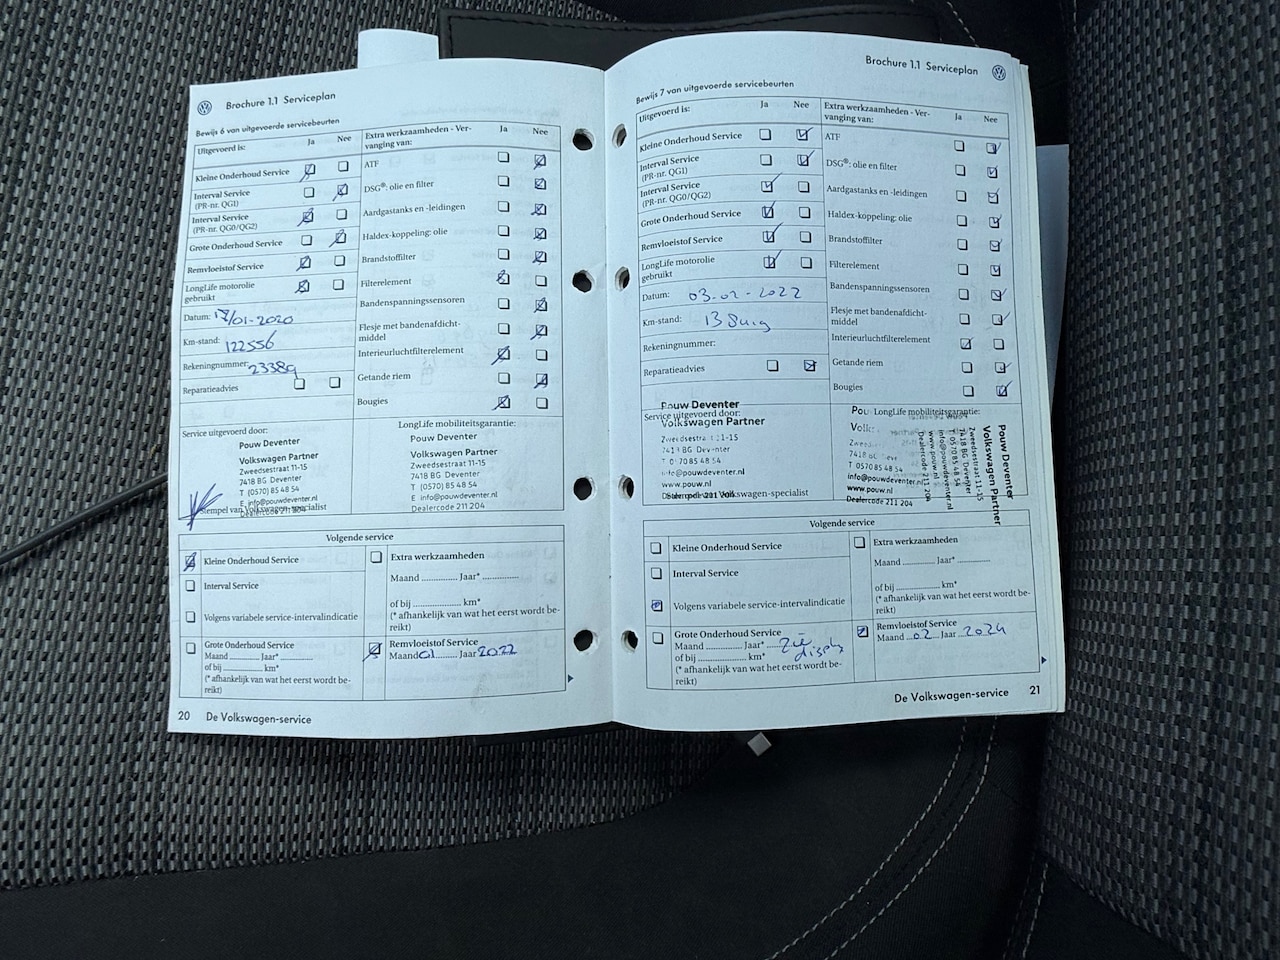 Brochure 1.1 Serviceplan
Bewijs 6 van uitgevoerde servicebeurten
Uitgevoerd is: Ja Nee
Kleine Onderhoud Service
Interval Service
(PR-nr. QG1)
Interval Service
(PR-nr. QG0/QG2)
Grote Onderhoud Service
Remvloeistof Service
LongLife motorolie
gebruikt
Datum: /01-2020
Km-stand: 122556
Rekeningnummer: 23389
Reparatieadvies
Extra werkzaamheden - Ver-
vanging van: Ja Nee
ATF
DSG®: olie en filter
Aardgastanks en -leidingen
Haldex-koppeling: olie
Brandstoffilter
Filterelement
Bandenspanningssensoren
Flesje met bandenafdicht-
middel
Interieurluchtfilterelement
Getande riem
Bougies
Service uitgevoerd door:
Pouw Deventer
Volkswagen Partner
Zweedsestraat 11-15
7418 BG Deventer
T (0570) 85 48 54
E info@pouwdeventer.nl
Dealercode 211 204
Stempel van Volkswagen-specialist
LongLife mobiliteitsgarantie:
Pouw Deventer
Volkswagen Partner
Zweedsestraat 11-15
7418 BG Deventer
T (0570) 85 48 54
E info@pouwdeventer.nl
Dealercode 211 204
Volgende service
Kleine Onderhoud Service
Interval Service
Volgens variabele service-intervalindicatie
Grote Onderhoud Service
Maand ............ Jaar* .............
of bij .................. km*
(* afhankelijk van wat het eerst wordt be-
reikt)
Extra werkzaamheden
Maand ............ Jaar* .............
of bij .................. km*
(* afhankelijk van wat het eerst wordt be-
reikt)
Remvloeistof Service
Maand 01 Jaar 2022
20 De Volkswagen-service
Brochure 1.1 Serviceplan
Bewijs 7 van uitgevoerde servicebeurten
Uitgevoerd is: Ja Nee
Kleine Onderhoud Service
Interval Service
(PR-nr. QG1)
Interval Service
(PR-nr. QG0/QG2)
Grote Onderhoud Service
Remvloeistof Service
LongLife motorolie
gebruikt
Datum: 03-02-2022
Km-stand:
Rekeningnummer:
Reparatieadvies
Extra werkzaamheden - Ver-
vanging van: Ja Nee
ATF
DSG®: olie en filter
Aardgastanks en -leidingen
Haldex-koppeling: olie
Brandstoffilter
Filterelement
Bandenspanningssensoren
Flesje met bandenafdicht-
middel
Interieurluchtfilterelement
Getande riem
Bougies
Service uitgevoerd door:
Pouw Deventer
Volkswagen Partner
Zweedsestraat 11-15
7418 BG Deventer
T 0570 85 48 54
info@pouwdeventer.nl
www.pouw.nl
Dealercode 211 204
Stempel van Volkswagen-specialist
LongLife mobiliteitsgarantie:
T 0570 85 48 54
info@pouwdeventer.nl
www.pouw.nl
Dealercode 211 204
Pouw Deventer
Volkswagen Partner
Zweedsestraat 11-15
7418 BG Deventer
T 0570 85 48 54
info@pouwdeventer.nl
www.pouw.nl
Dealercode 211 204
Volgende service
Kleine Onderhoud Service
Interval Service
Volgens variabele service-intervalindicatie
Grote Onderhoud Service
Maand ............ Jaar* ............. zie
of bij .................. km* display
(* afhankelijk van wat het eerst wordt be-
reikt)
Extra werkzaamheden
Maand ............ Jaar* .............
of bij .................. km*
(* afhankelijk van wat het eerst wordt be-
reikt)
Remvloeistof Service
Maand 02 Jaar 2024
De Volkswagen-service 21